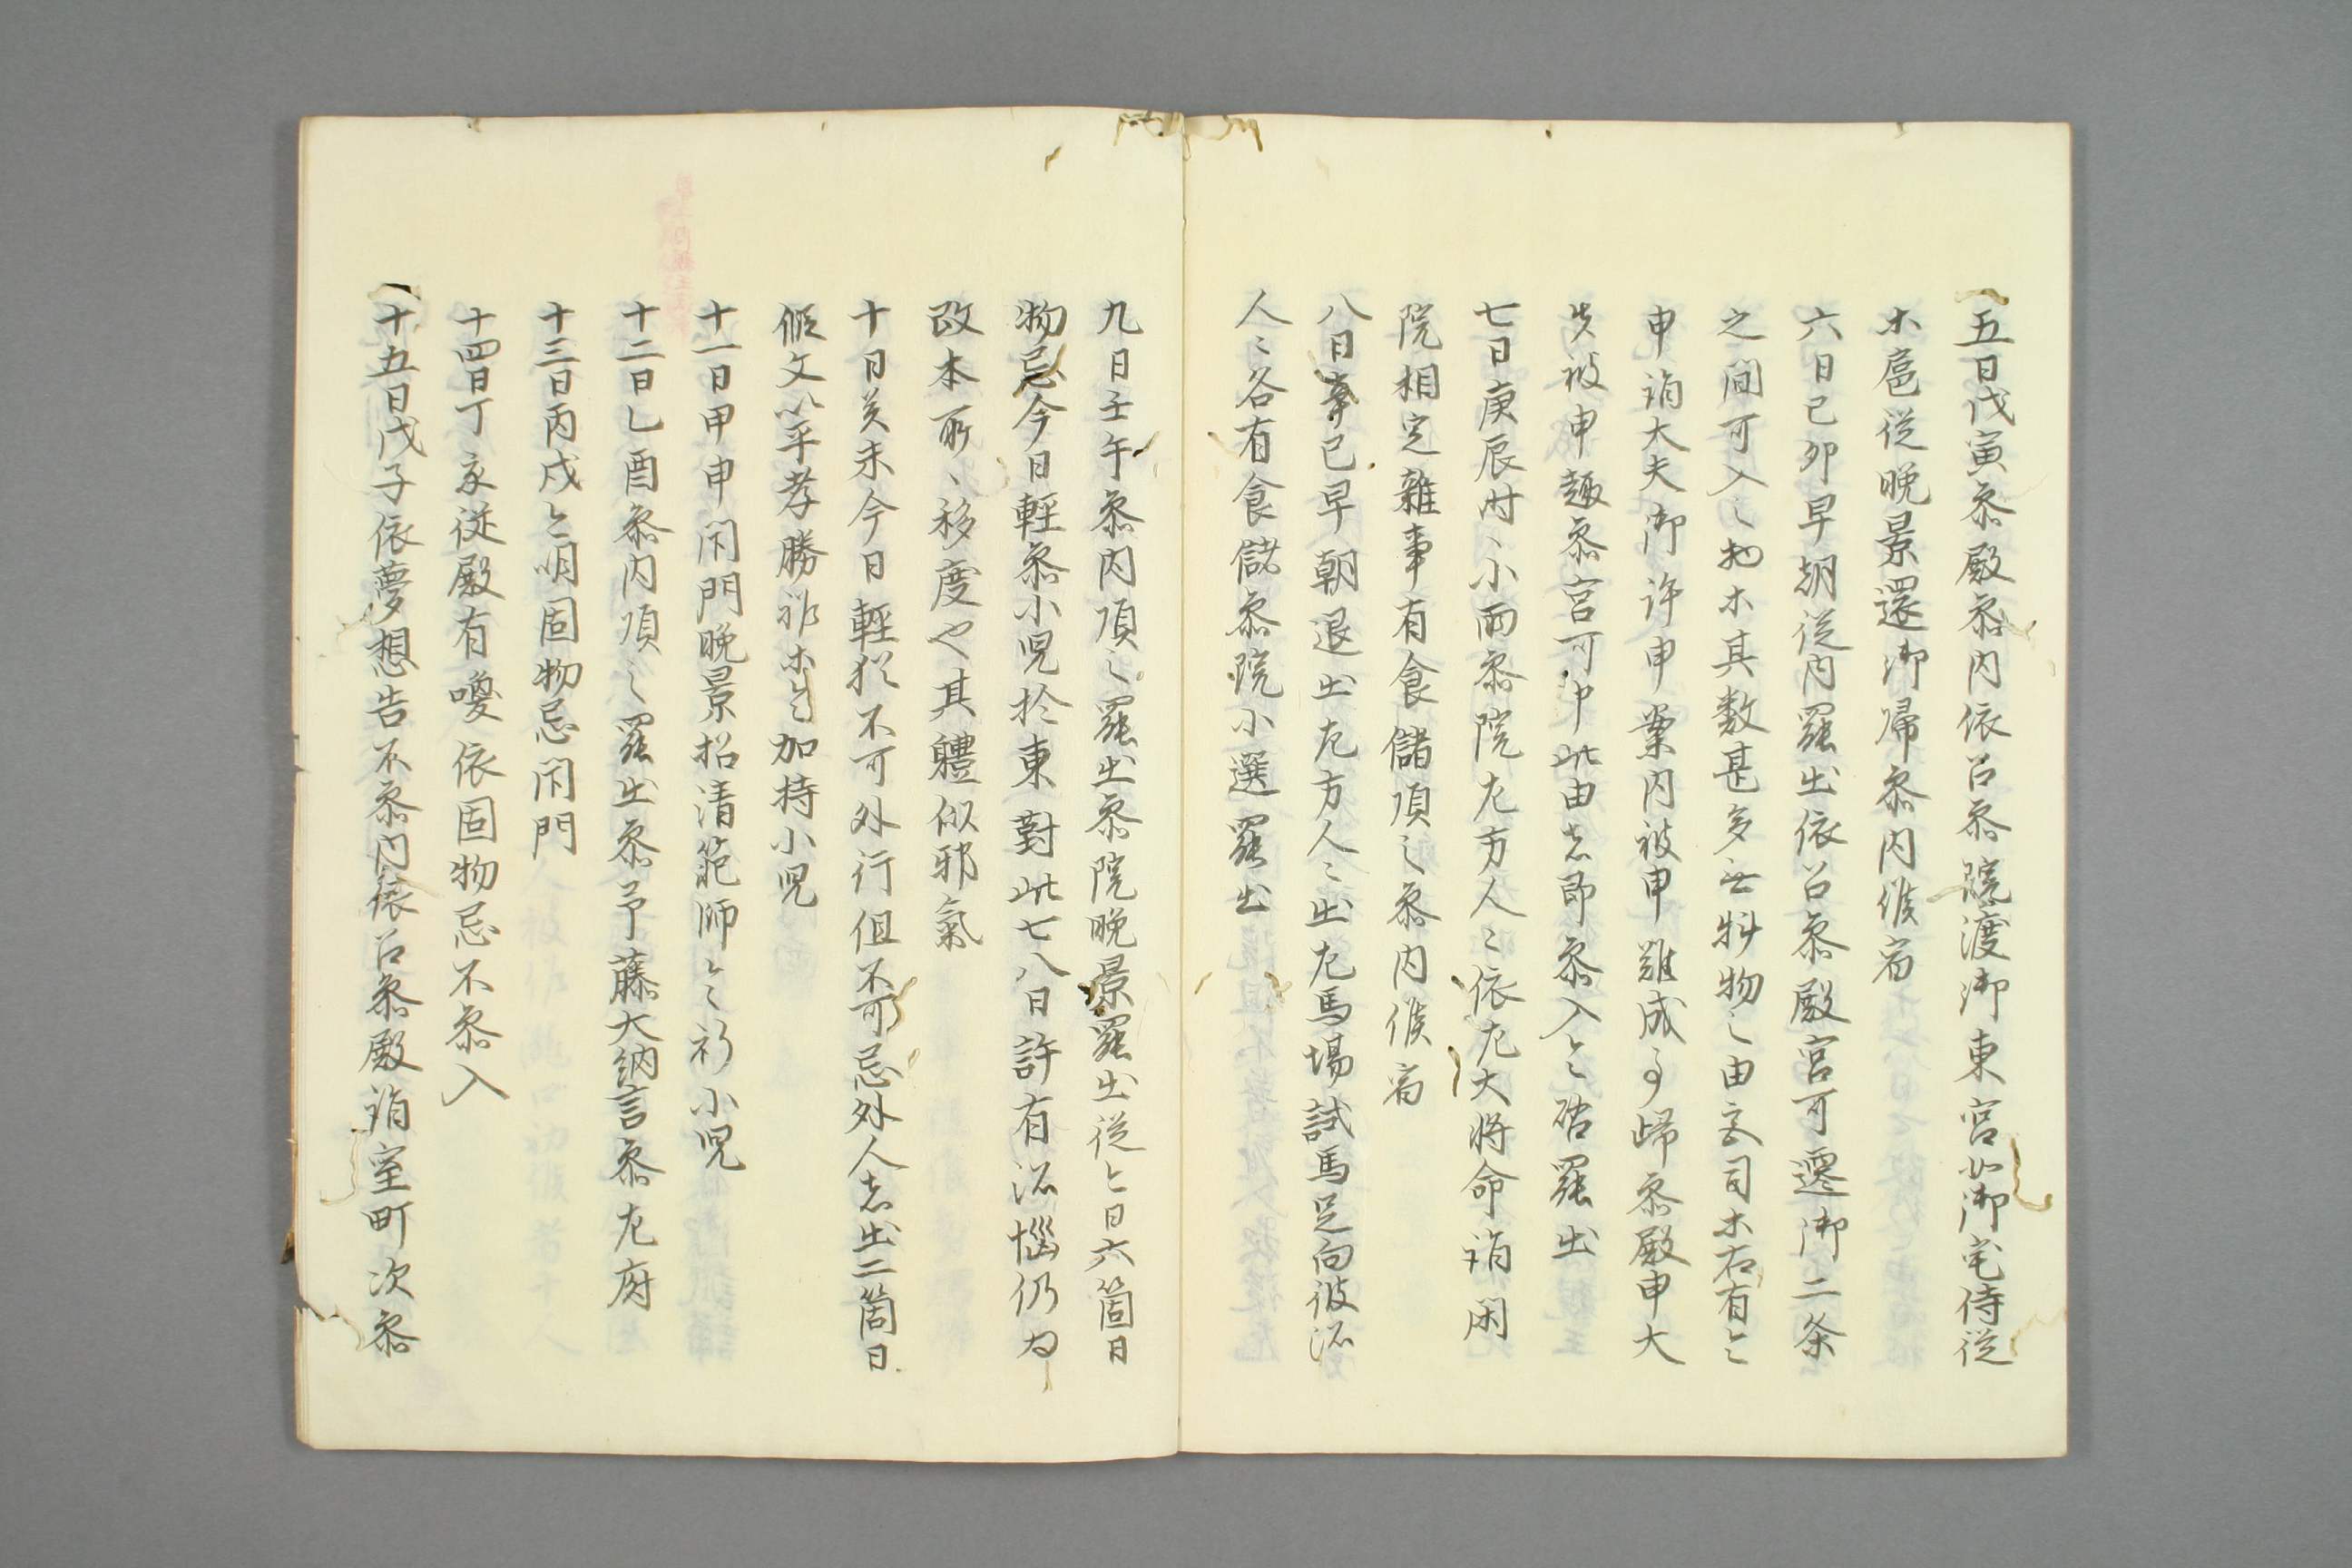 五日戊寅参殿参内依召参院渡御東宮出御宅侍従
木扈従晩景還御帰参内候宿
六日己卯早朝従内罷出依召参殿宮可遷御二条
之間可入之物木其数甚多無料物之由云司木右有云
申詣大夫御許申案内被申難成事帰参殿申大
夫被申趣参宮可申此由者即参入云啓罷出
七日庚辰时、小雨参院左方人々依左大将命詣閑
院相定雑事有食儲頃之参内候宿
八日辛巳早朝退出左方人々出左馬場試馬足向彼所
人々各有食儲参院小選罷出
九日壬午参内頃之罷出参院晩景罷出従今日六箇日
物忌今日軽参小児於東對此七八日許有所悩仍为
改本所、移度也其軆似邪氣
十日癸未今日軽犹不可外行但不可忌外人者出二箇日
假文以平孝勝祚木令加持小児
十一日甲申閇門晩景招清範師令祈小児
十二日乙酉参内頃之罷出参予藤大納言参左府
十三日丙戌今明固物忌閇門
十四日丁亥従殿有喚依固物忌不参入
十五日戊子依夢想告不参内依召参殿詣室町次参